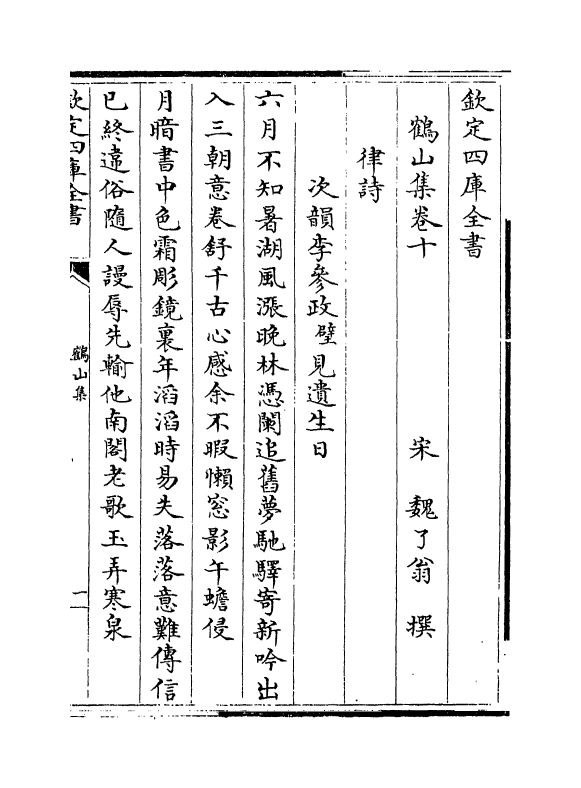 欽定四庫全書
鶴山集卷十　宋　魏了翁　撰
律詩
次韻李參政壁見遺生日
六月不知暑湖風漲晚林憑闌追舊夢馳驛寄新吟出
入三朝意卷舒千古心感余不暇懶窓影午蟾侵
月暗書中色霜彫鏡裏年滔滔時易失落落意難傳信
已終違俗隨人謾辱先輸他南閣老歌玉弄寒泉
欽定四庫全書
鶴山集
一